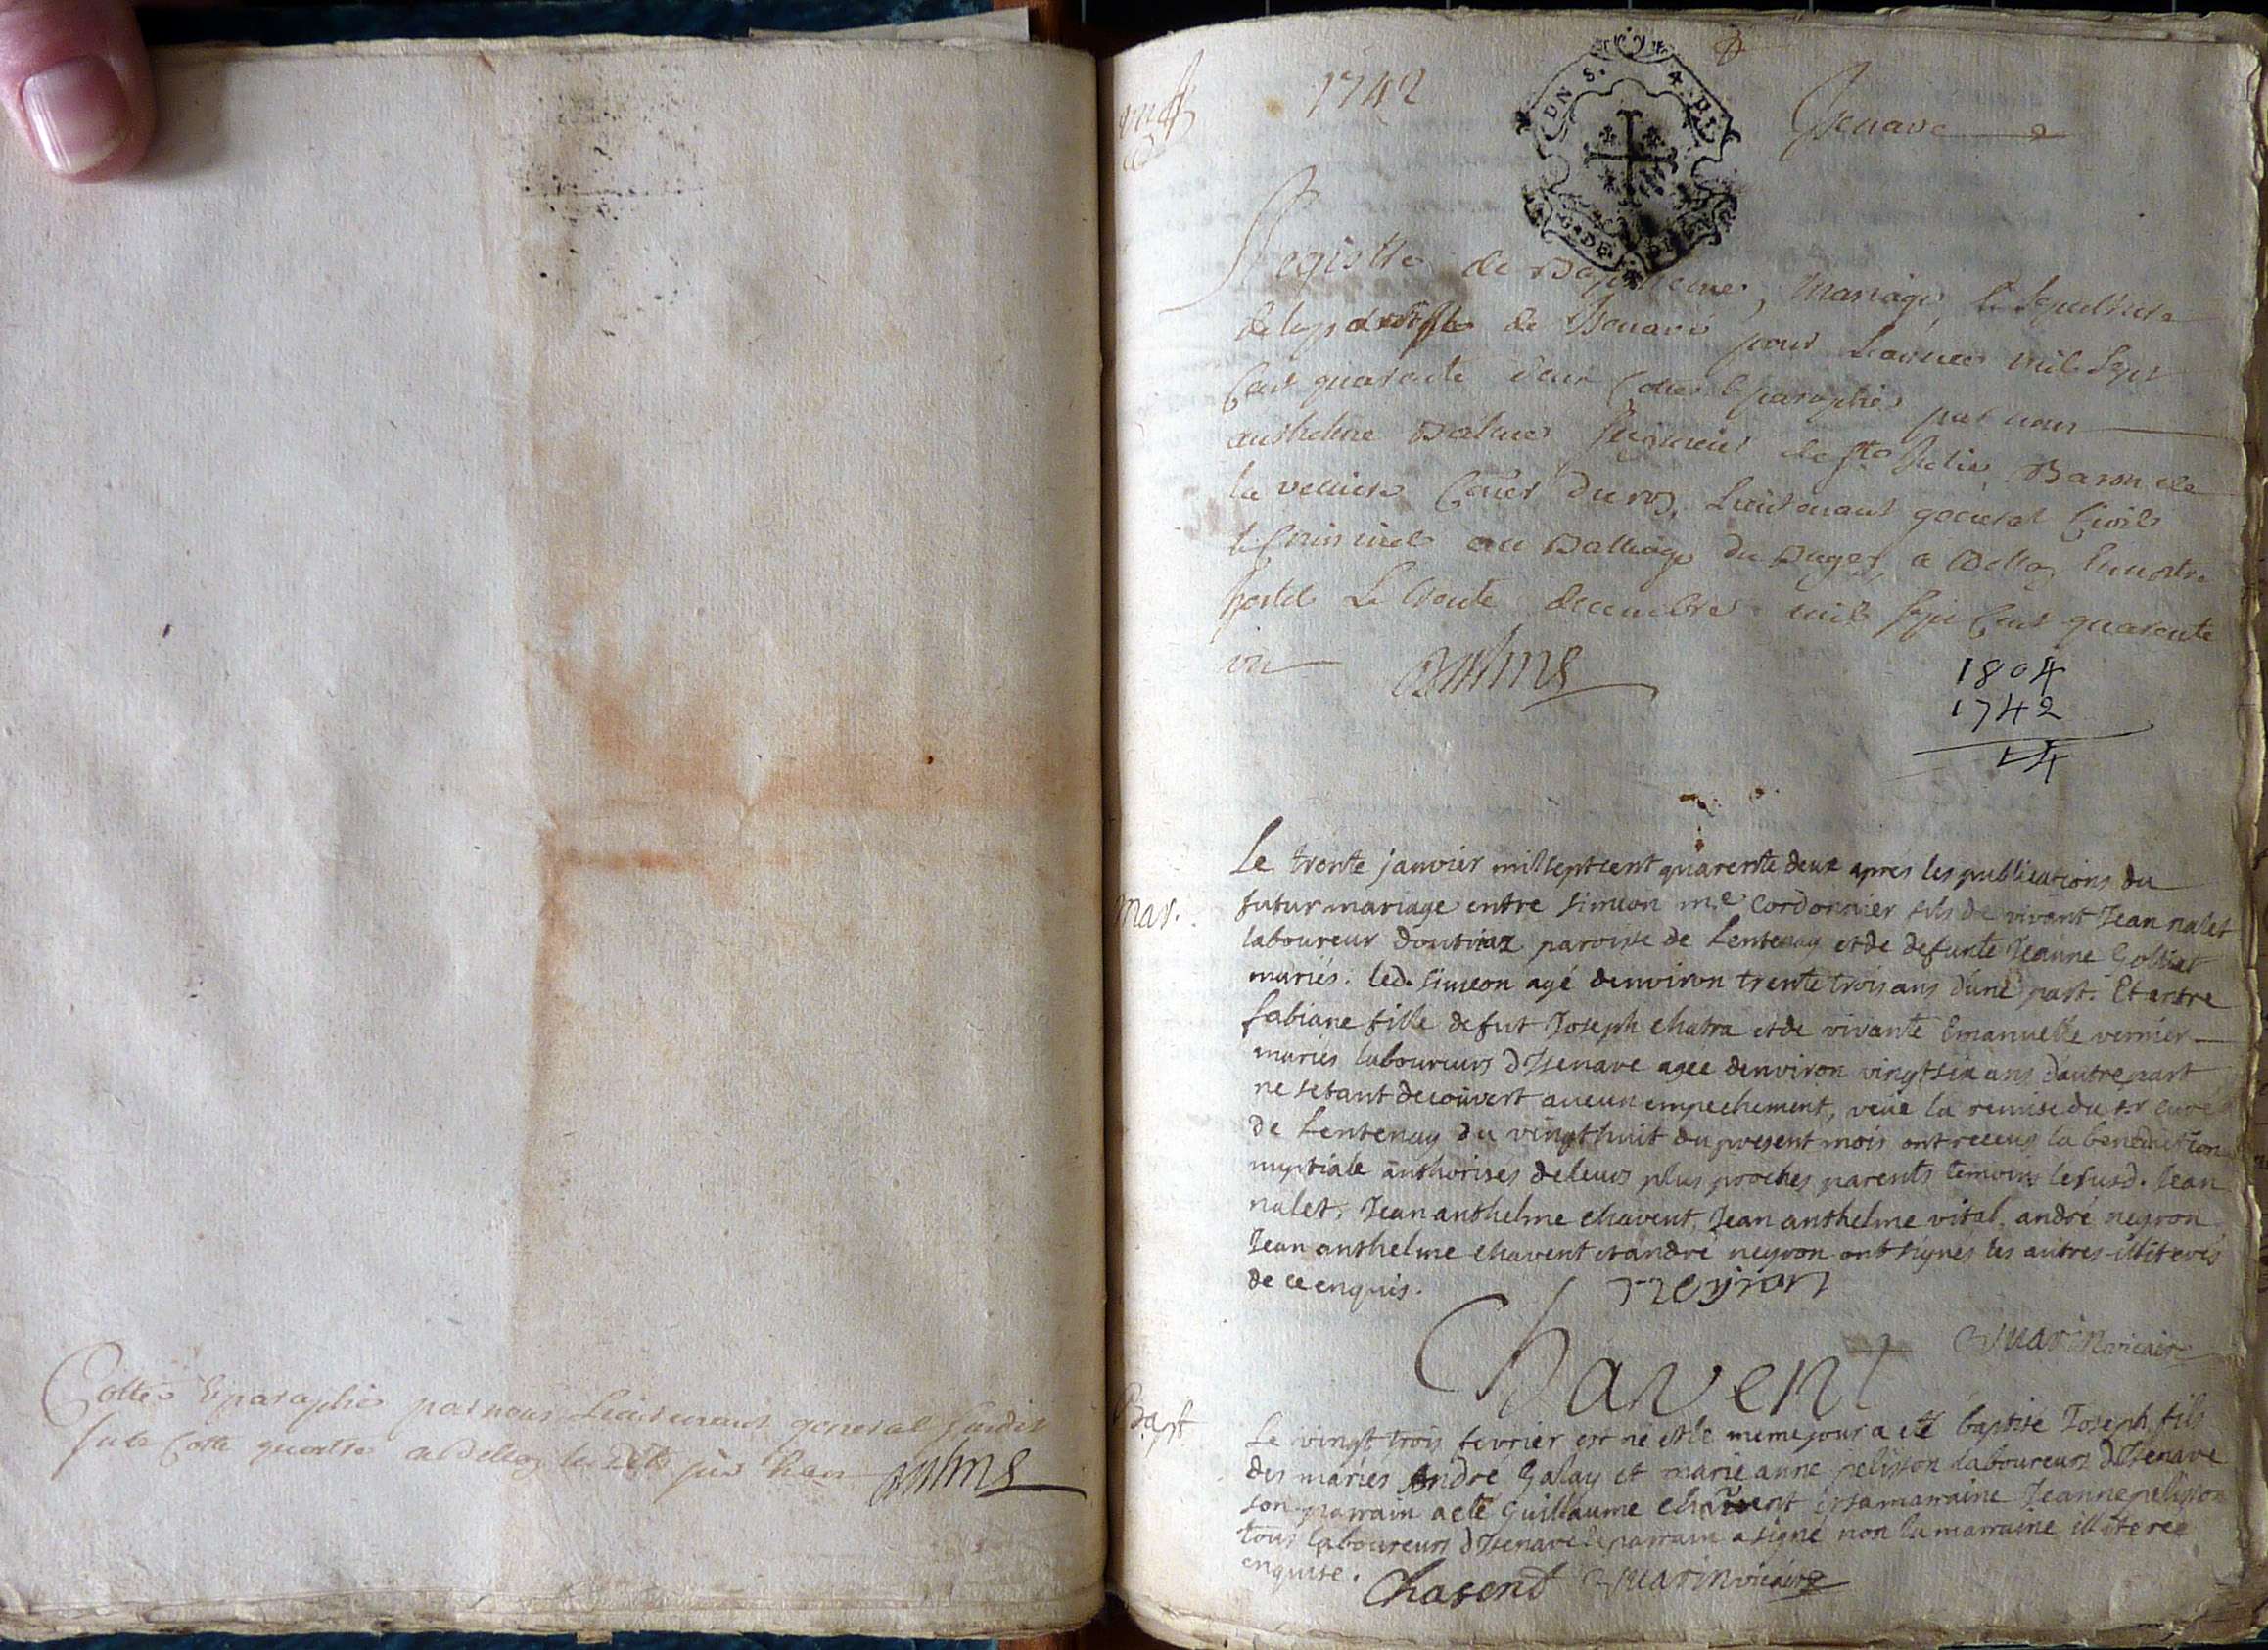 Cottés & paraphés par nous Lieutenant general susdit
sub Cotte quatre a Belley les dits jour & an
1742
DN S.
Izenave
Registre de Baptemes, Mariages, & Sepultures
de la paroisse de Izenave pour L'année mil sept
Cent quarante deux Cottés & paraphés par nous
anthelme Seigneur de Ste Julie, Baron de
la veliere Coner du roy, Lieutenant general Civil
& Criminel au Balliage du Bugey a Belley en nostre
hostel Le trente decembre mil sept Cent quarente
un
1804
1742
14
Mar.
Le trente janvier mil sept cent quarente deux apres les publications du
futur mariage entre simeon me cordonnier fils de vivant Jean nalet
laboureur doutriaz paroisse de Lentenay et de defunte Jeanne
mariés. led. simeon agé denviron trente trois ans dune part. Et entre
fabiane fille de fut Joseph chatra et de vivante Emanuelle vernier
mariés laboureurs dIzenave agee denviron vingt six ans dautre part
ne setant decouvert aucun empechement, veüe la remise du sr curé
de Lentenay du vingt huit du present mois ont receus la benediction
nuptiale authorises de leurs plus proches parents temoins le susd. Jean
nalet, Jean anthelme chavent, Jean anthelme vital, andré neyron
Jean anthelme chavent et andré neyron ont signés les autres illiterés
de ce enquis.
neyron
Chavent
Suarin vicaire
Bapt
Le vingt trois fevrier est né et le meme jour a eté baptisé Joseph fils
des mariés André Galay et marie anne pelisson laboureurs dIzenave
son parrain a eté Guillaume chavent et sa marraine Jeanne pelisson
tous laboureurs dIzenave le parrain a signé non la marraine illiteree
enquise.
Chavent
Suarin vicaire